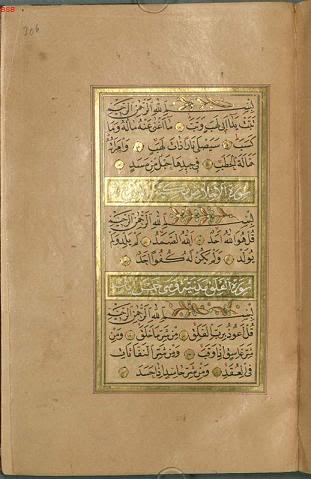 306
بسم الله الرحمن الرحيم
تبت يدا ابى لهب وتب ما اغنى عنه ماله وما
كسب سيصلى نارا ذات لهب وامراته
حمالة الحطب فى جيدها حبل من مسد
سورة الاخلاص
بسم الله الرحمن الرحيم
قل هو الله احد الله الصمد لم يلد ولم
يولد ولم يكن له كفوا احد
سورة الفلق مدنية وهى خمس ايات
بسم الله الرحمن الرحيم
قل اعوذ برب الفلق من شر ما خلق ومن
شر غاسق اذا وقب ومن شر النفاثات
فى العقد ومن شر حاسد اذا حسد